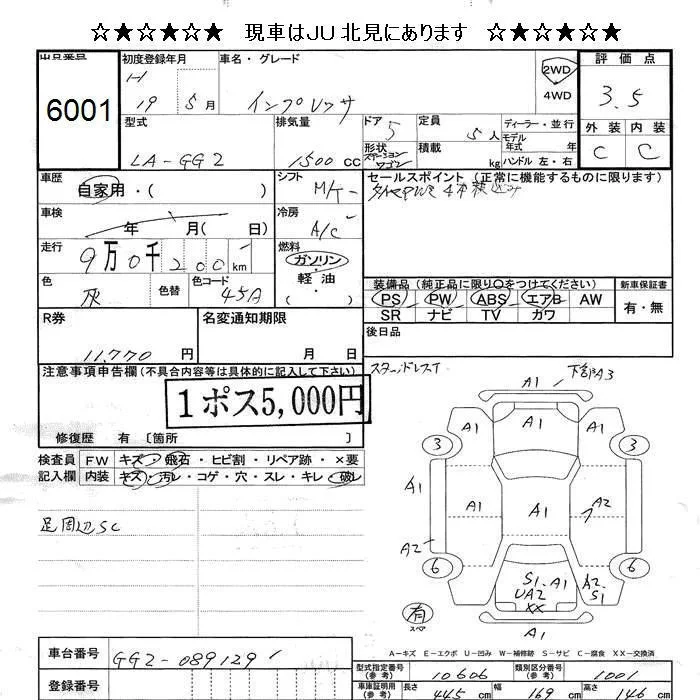 ☆★☆★☆★ 現車はJU北見にあります ☆★☆★☆★
出品番号 初度登録年月 車名・グレード 評価点
6001 H 19 5月 インプレッサ 2WD 4WD 3.5
外装 内装
C C
型式 排気量 ドア 定員 ディーラー・並行
LA-GG2 1500 cc 5 5人 モデル年式 年
形状 ステーションワゴン 積載 kg ハンドル 左・右
車歴 自家用・( ) シフト セールスポイント (正常に機能するものに限ります)
車検 年 月( 日) 冷房 A/C
走行 9万0千200km 燃料 ガソリン・軽油・( )
色 灰 色替 色コード 45A
装備品 (純正品に限り○をつけてください) 新車保証書
PS PW ABS エアB AW 有・無
SR ナビ TV カワ
R券 名変通知期限 後日品
11,770 円 月 日
注意事項申告欄(不具合内容等は具体的に記入して下さい)
1ポス5,000円
修復歴 有 〔箇所 〕
検査員 FW キズ・飛石・ヒビ割・リペア跡・×要
記入欄 内装 キズ・汚レ・コゲ・穴・スレ・キレ・破レ
足周辺SC
スタッドレスT
A1 下部A3
A1
3 A1 A1 3
A1 A1 A1 A1 A2
A2
6 6
S1 A1 UA2 XX
A2 S1
有 スペア
A1
A-キズ E-エクボ U-凹み W-補修跡 S-サビ C-腐食 XX-交換済
車台番号 GG2-089129
登録番号
型式指定番号(参考) 10606 類別区分番号(参考) 1001
車庫証明用(参考) 長さ 445 cm 幅 169 cm 高さ 146 cm